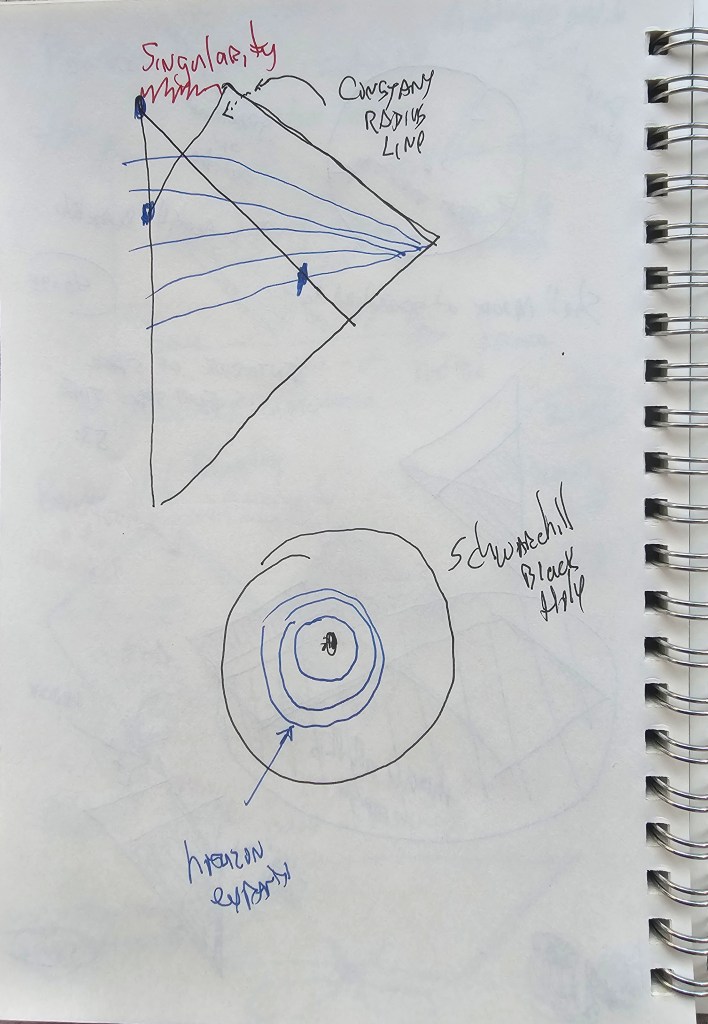 Singularity
CONSTANT
RADIUS
LINE
Schwarchill
Black
Hole
horizon
expands